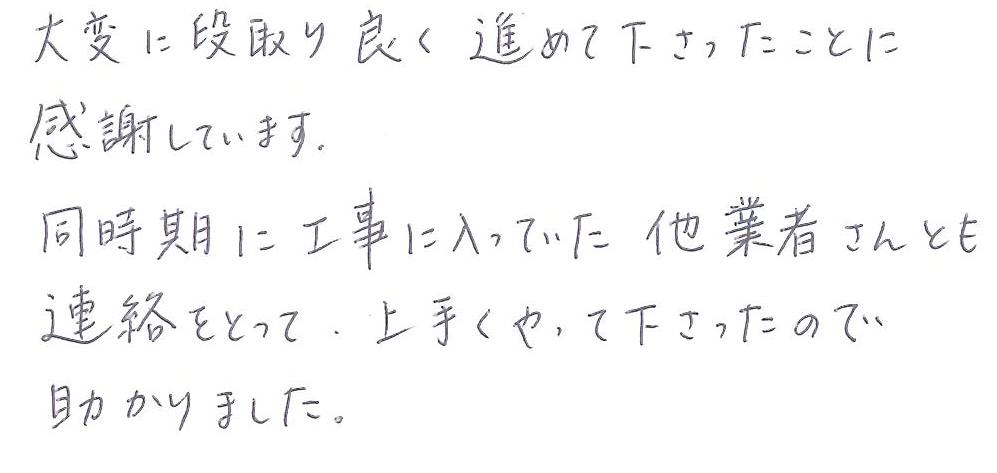 大変に段取り良く進めて下さったことに
感謝しています.
同時期に工事に入っていた他業者さんとも
連絡をとって、上手くやって下さったので
助かりました。